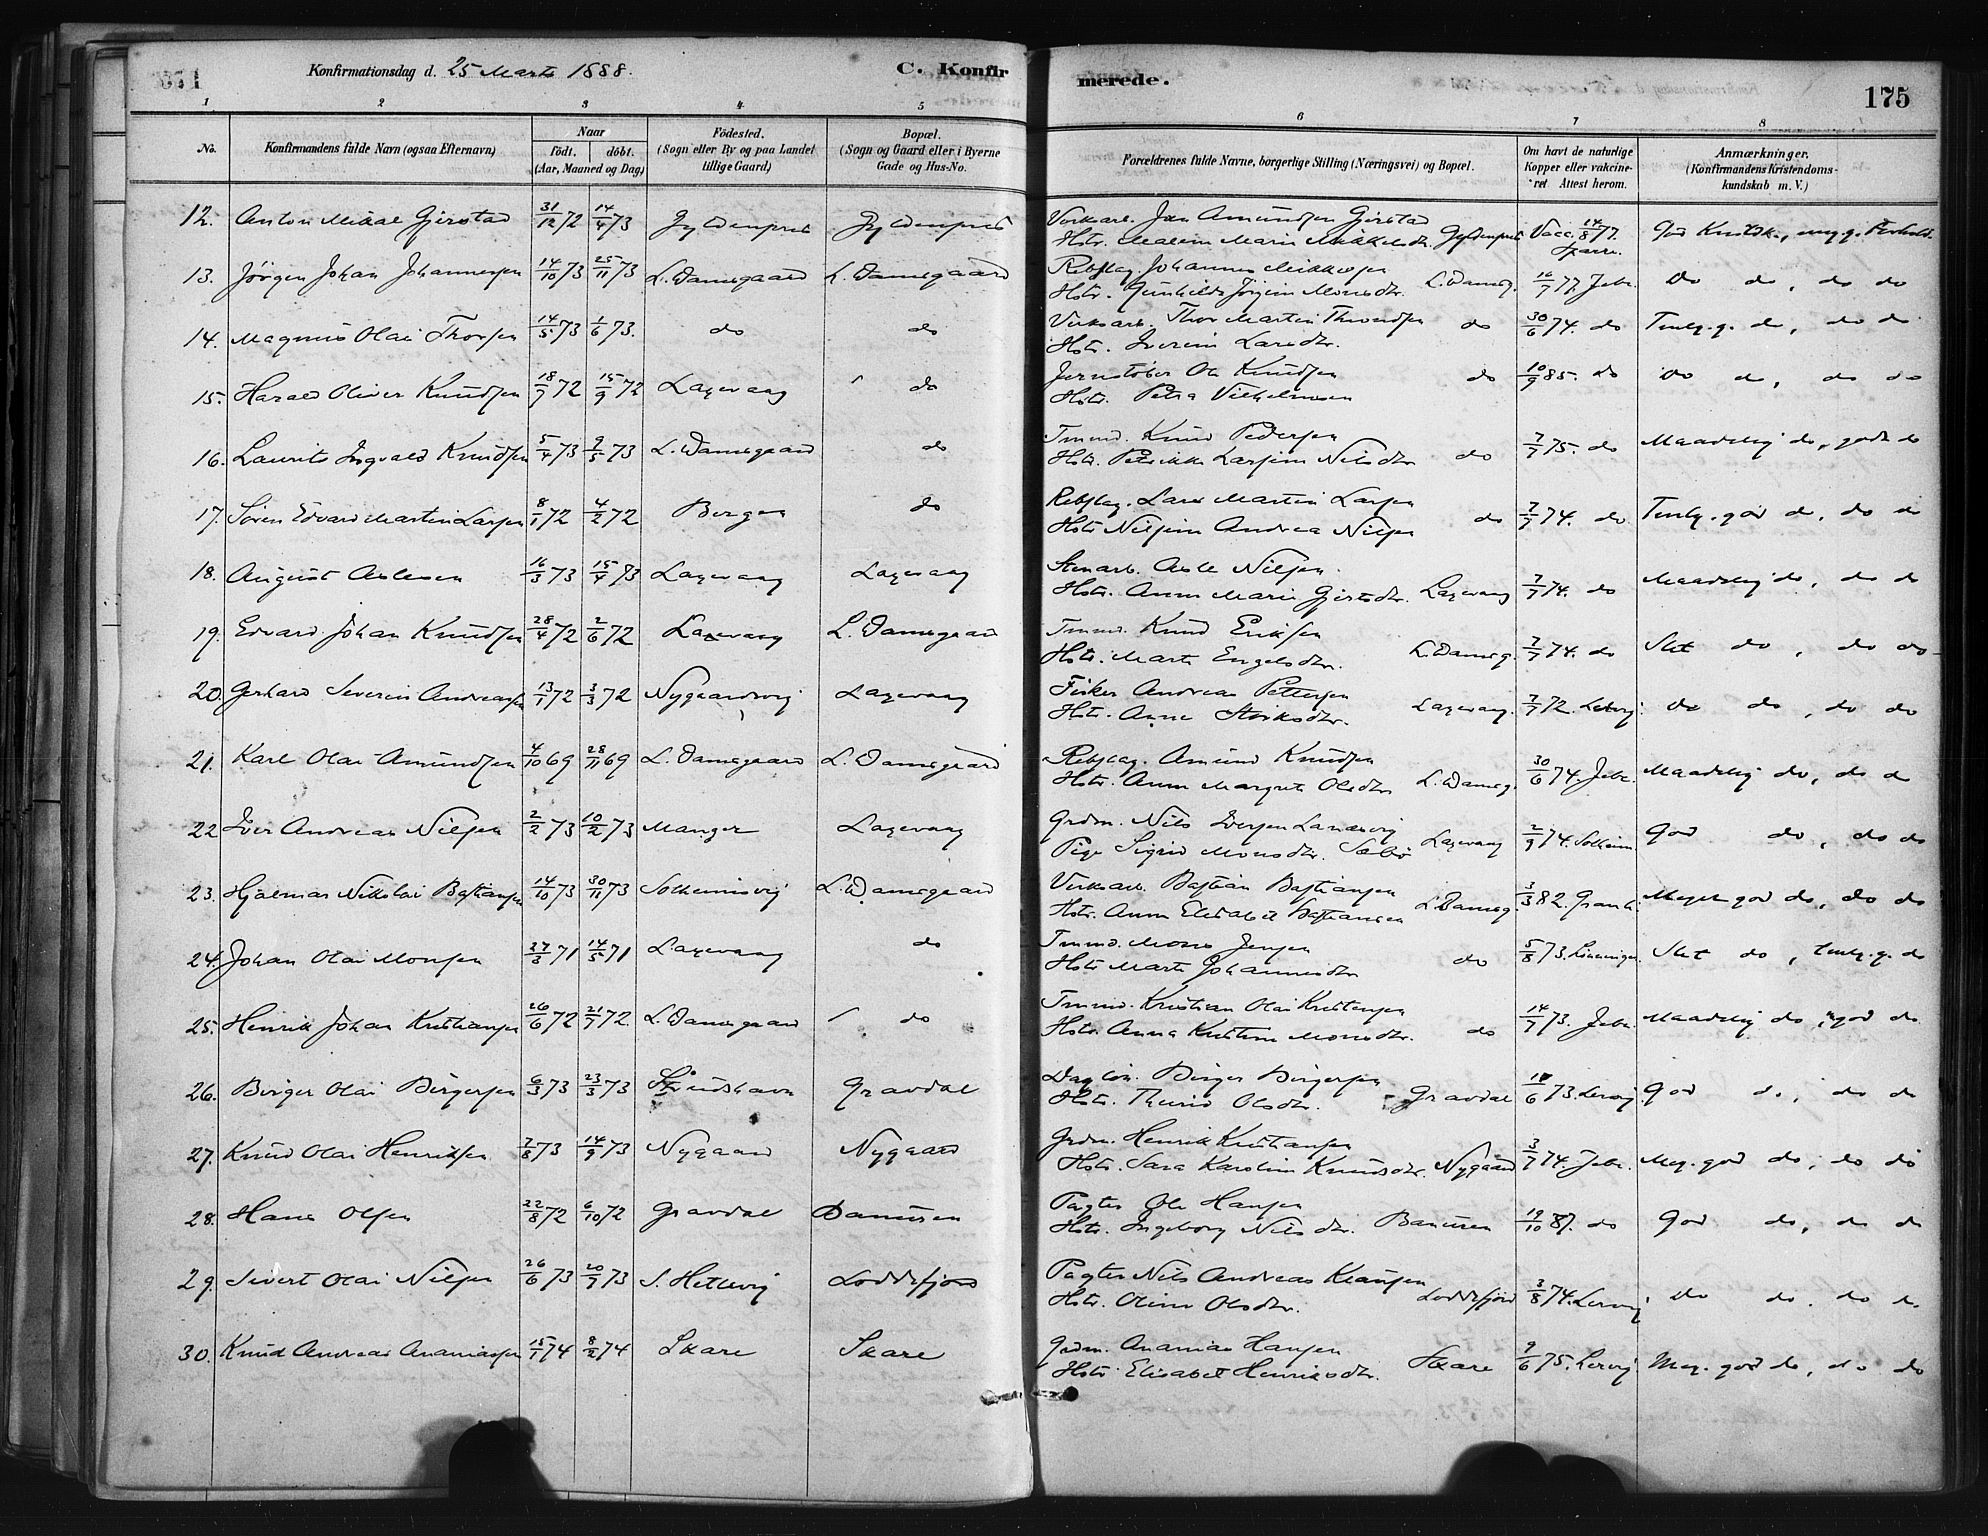 Konfirmationsdag d. 25 Marts 1888.
C. Konfirmerede.
175
1 2 3 4 5 6 7 8
No.
Konfirmandens fulde Navn (ogsaa Efternavn)
Naar
födt. döbt.
(Aar, Maaned og Dag)
Födested.
(Sogn eller By og paa Landet
tillige Gaard)
Bopæl.
(Sogn og Gaard eller i Byerne
Gade og Hus-No.
Forældrenes fulde Navne, borgerlige Stilling (Næringsvei) og Bopæl.
Om havt de naturlige
Kopper eller vakcine-
ret Attest herom.
Anmærkninger.
(Konfirmandens Kristendoms-
kundskab m. V.)
12. Anton Mikal Gjerstad 31/12 72 14/4 73 Gyldenpris Gyldenpris
Verksarb. Jan Amundsen Gjerstad
Hstr. Malene Marie Mikkelsdtr. Gyldenpris Vacc. 14/8 77.
13. Jörgen Johan Johannesen 14/10 73 25/11 73 L. Damsgaard L. Damsgaard
Rebslag. Johannes Mikkelsen
Hstr. Gunhilda Jörgine Monsdtr. L. Damsg. 16/7 77. Jebe. Do do, do do
14. Magnus Olai Thorsen 14/5 73 1/6 73. do do
Verksarb. Thor Martin Thorsen do 30/6 74. do
Hstr. Severine Larsdtr.
15. Harald Oliver Knudsen 18/7 72 15/9 72 Laxevaag do
Jernstöber Ole Knudsen do 10/9 85. do Do do, do do
Hstr. Petra Vilhelmsen
16. Laurits Ingvald Knudsen 5/4 73 9/5 73 L. Damsgaard do
Tmmd. Knud Pedersen
Hstr. Petrikke Larsine Nilsdtr do 7/7 75. do Maadelig do, godt do
17. Sören Edvard Martin Larsen 8/1 72 4/2 72 Bergen do
Rebslag. Lars Martin Larsen
Hstr Nilsine Andrea Nilsen do 7/7 74. do Temlg. god do, do do
18. August Aslesen 16/3 73 15/4 73 Laxevaag Laxevaag
Stenarb. Asle Nilsen.
Hstr. Anna Marie Gjertsdtr. Laxevaag 7/7 74. do Maadelig do, do do
19. Edvard Johan Knudsen 28/4 72 2/6 72 Laxevaag L. Damsgaard
Tmmd. Knud Eriksen
Hstr. Marte Engelsdtr. L. Damsg. 7/7 74. do Slet do, do do
20. Gerhard Severin Andreassen 13/1 72 3/3 72 Nygaardsvig Laxevaag
Fisker Andreas Pettersen
Hstr. Anne Steiksdtr. Laxevaag. 7/7 72. Do do, do do
21. Karl Olai Amundsen 4/10 69 28/11 69 L. Damsgaard L. Damsgaard
Rebslag. Amund Knudsen
Hstr. Anna Margrete Olsdtr L. Damsg. 30/6 74. Jebe. Maadelig do, do do
22 Iver Andreas Nilsen 2/2 73 10/2 73 Manger Laxevaag
Grdm. Nils Iversen Landsvig
Pige Sigrid Monsdtr. Sæbö Laxevaag 2/9 74. Solheim. God do, do do
23. Hjalmar Nikolai Bastiansen 14/10 73 30/11 73 Solheimsvig L. Damsgaard
Verksarb. Bastian Bastiansen
Hstr. Anna Elisabet Bastiansen L. Damsg. 3/3 82. Meget god do, do do
24. Johan Olai Monsen 27/3 71 14/5 71 Laxevaag do
Tmmd. Mons Jensen
Hstr Marte Johannesdtr do 5/8 73. Slet do, temlg. g. do
25. Henrik Johan Kristiansen 26/6 72 21/7 72. L. Damsgaard do
Tmmd. Kristian Olai Kristensen
Hstr. Anna Kristine Monsdtr. do 14/7 73. Jebe. Maadelig do, god do
26. Birger Olai Birgersen 6/3 73 23/3 73 Gravdal
Daglön. Birger Birgersen
Hstr. Thurid Olsdtr. Gravdal 18/6 73. Lervig. God do, do do
27. Knud Olai Henriksen 7/8 73 14/9 73 Nygaard Nygaard
Grdm. Henrik Kristiansen
Hstr. Sara Karoline Knudsdtr. Nygaard 3/7 74. Jebe. Meg. god do, do do
28. Hans Olsen 22/8 72 6/10 72 Gravdal
Pagter Ole Hansen
Hstr. Ingeborg Nilsdtr. 19/10 87. do God do, do do
29. Sivert Olai Nilsen 26/6 73 20/7 73 S. Hetlevig Loddefjord
Pagter Nils Andreas Klausen
Hstr. Oline Olsdtr. Loddefjord 3/8 74. Lervig Do do. do do
30. Knud Andreas Ananiassen 15/1 74 8/2 74 Skare Skare
Grdm. Ananias Hansen
Hstr. Elisabet Henriksdtr. Skare 9/6 75. Lervig Meg. god do, do do